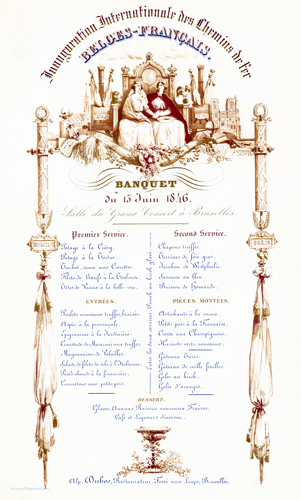 Inauguration Internationale des Chemins de fer
BELGES-FRANÇAIS.
BANQUET
du 15 Juin 1846.
Salle du Grand Concert à Bruxelles
BRUXELLES
PARIS
Premier Service.
Potage à la
Potage à la
Turbot, sauce aux Crevettes
Filets de Boeufs à la
Têtes de Veaux à la
ENTRÉES.
Poulets nouveaux truffés,
Aspic à la provençale
Epigramme à la Jardinière
de Homards aux truffes
Mayonnaises de Volailles
Salade de filets de sole à l'Italienne
Pâté chaud à la financière
Canetons aux petits pois
Entre les deux services: Punch au kirch glacé
Second Service.
Chapons truffés
Terrines de foie gras
Jambon de Westphalie
Saumon au bleu
Buisson de Homards
PIÈCES MONTÉES.
Artichauts à la
Petits pois à la Française
Croûte aux Champignons
Haricots verts, nouveaux
Gâteaux
Gâteaux de mille feuilles
Gelée au kirch
Gelée d'oranges
DESSERT.
Glaces, Ananas, Raisins nouveaux, Fraises,
Café et Liqueurs diverses.
Alp. Dubos, Restaurateur, Fossé aux Loups, Bruxelles.